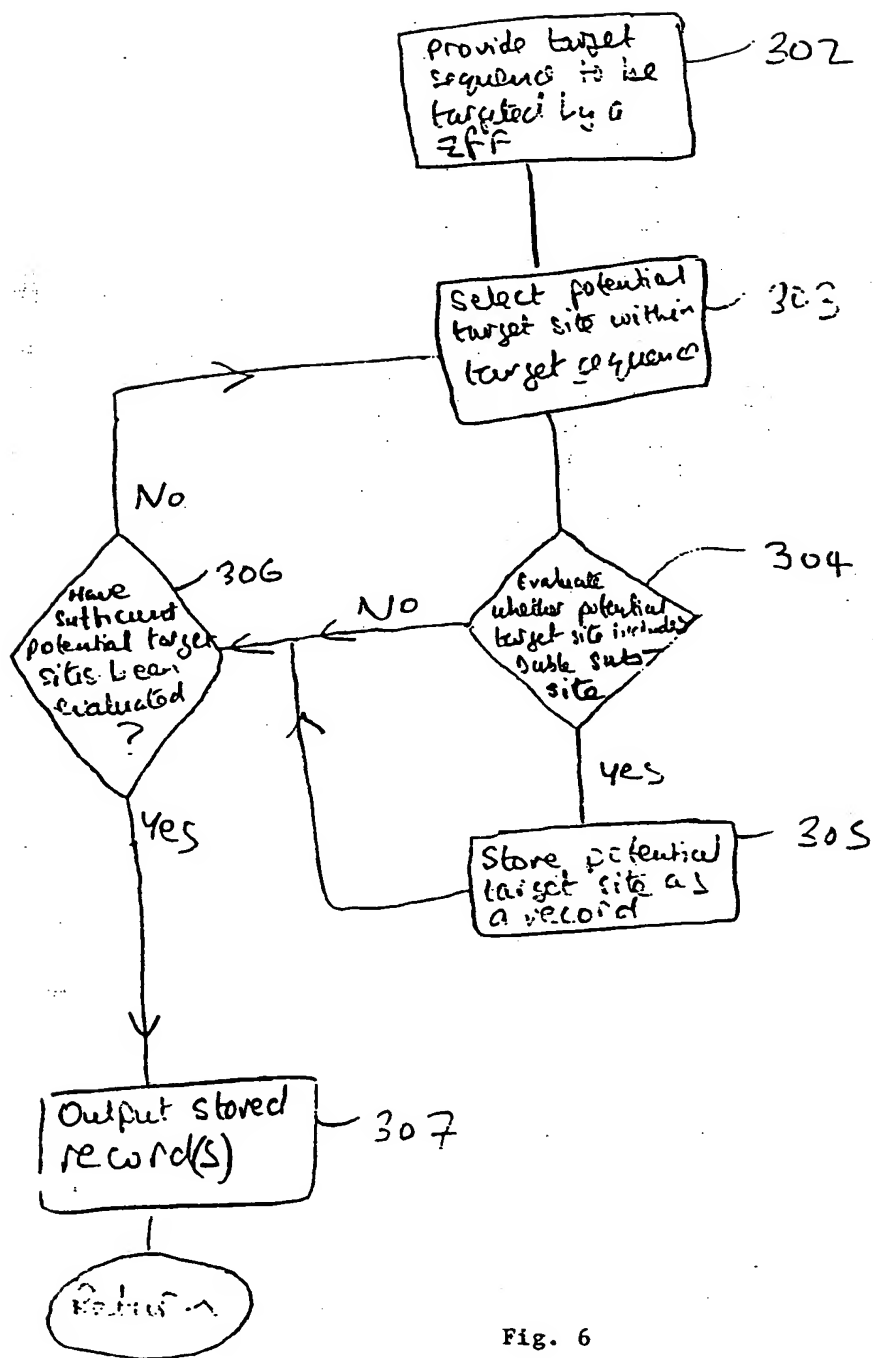 provide target
sequence to be
targeted by a
ZFP
302
Select potential
target site within
target sequence
303
No
Have
sufficient
potential target
sites been
evaluated
?
306
No
Evaluate
whether potential
target site includes
site
304
yes
Yes
Store potential
target site as
a record
305
Output stored
record(s)
307
Fig. 6